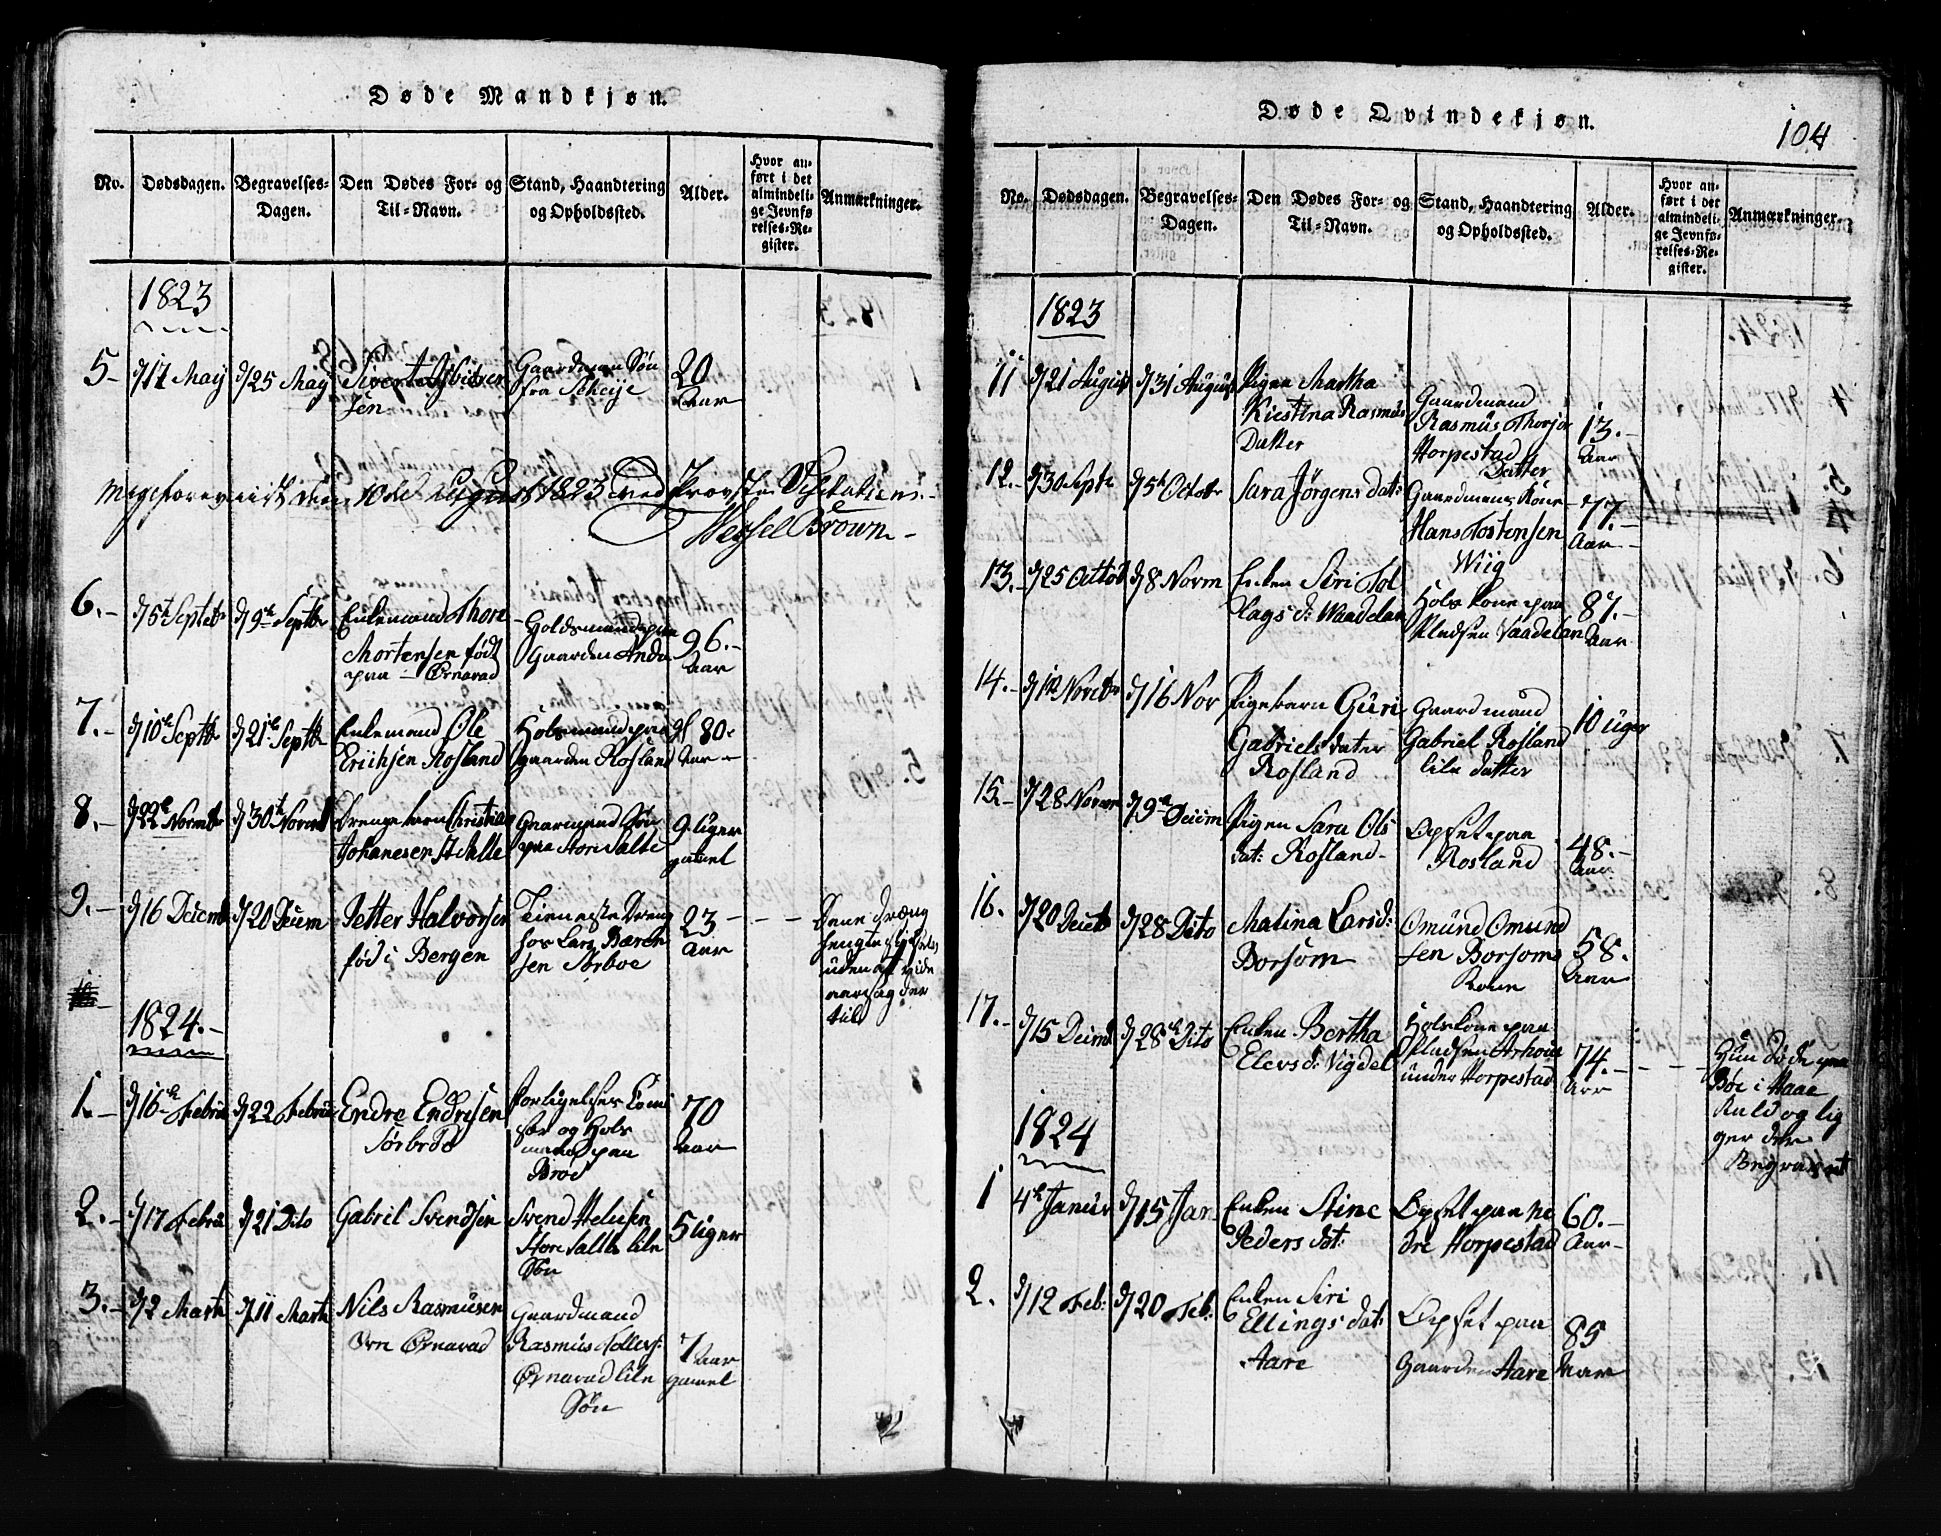 Døde Mandkjøn.
No.
Dødsdagen.
Begravelses-
Dagen.
Den Dødes For- og
Til-Navn.
Stand, Haandtering
og Opholdssted.
Alder.
Hvor an-
ført i det
almindeli-
ge Jevnfø
relses-Re-
gister.
Anmærkninger.
1823
5-
d/17 May
d/25 May
Sivert
sen
Gaardmand Søn
fra
20
Aar
den 10de August 1823 ved Provste Visitatiens
Wessel Brown
6.-
d/5t Septebr
d/9de Septbr
Enkemand Thore
Mortensen født
paa Ørnavad
Holdsmand paa
Gaarden Anda
96.-
Aar
7.-
d/10de Septbr
d/21de Septbr
Enkemand Ole
Eriiksen Rosland
Holsmand paa
gaarden Rosland
80.
Aar
8.-
d/22de Novmbr
d/30te Novmbr
Drengebarn Christian
Johanesen St Salte
Gaarmand Søn
paa Store Salte
9 Uger
gamel
9.-
d/16 Decemb
d/20 Decem
Petter Halvorsen
fød i Bergen
Tieneste Dreng
hos Lars Bærent
sen Sørboe
23
Aar
Dene dræng
hengte sig selv
uden at vide
aarsag der
til
1824.-
1.-
d/16de Februar
d/22 Februar
Endre Endresen
Sørbrød
Forligelses Comi
sær og Hols
mand paa
Brød
70
Aar
2.-
d/17 Februar
d/21 Dito
Gabril Svendsen
Svend Heliesen
Store Salte lile
Søn
5 Uger
3.-
d/2 Marts
d/11 Marts
Nils Rasmusen
Ørnavad
Gaardmand
Rasmus Tollevs:
Ørnavad lile
Søn
7 Aar
gamel
Døde Qvindekjøn.
104
No.
Dødsdagen.
Begravelses-
Dagen.
Den Dødes For- og
Til-Navn.
Stand, Haandtering
og Opholdssted.
Alder.
Hvor an-
ført i det
almindeli-
ge Jevnfø-
relses-Re-
gister.
Anmærkninger.
1823
11
d/21 August
d/31 August
Pigen Martha
Kirstina Rasmus
Datter
Gaardmand
Rasmus Thorsen
Horpestad
Datter
13.-
Aar
12.-
d/30 Septr
d/5t Octobr
Sara Jørgens dat:
Gaardmans Kone
Hans Tostensen
Wiig
77.-
Aar
13.-
d/25 Octob
d/8 Novm
Enken Siri Tol
lags d: Waadelan
Hols kone paa
Pladsen Vaadelan
87.-
Aar
14.-
d/12 Novebr
d/16 Nov
Pigebarn Guri
Gabriels dater
Rosland
Gaardmand
Gabriel Rosland
lile datter
10 Uger
15.-
d/28 Novm
d/9de Decem
Pigen Sara Ols
dat: Rosland-
Opset paa
Rosland
48.-
Aar
16.
d/20 Deceb
d/28 Dito
Malina Lars d:
Borsom
Omund Omund
sen Borsoms
Kone
58.
Aar
17.-
d/15 Decem
d/28de Dito
Enken Bertha
Elevs d: Vigdel
Hols kone paa
Pladsen Arhous
under Horpestad
74.-
Aar
Hun døde paa
Bøe i Haae
Kald og lig
ger der
Begravet
1824
1
4de Januar
d/15 Jan
Enken Stine
Peders dat:
Opset paa ne
dre Horpestad
60.-
Aar
2.
d/12 Feb:
d/20 Feb:
Enken Siri
Ellings dat:
Aare
Opset paa
Gaarden Aare
85
Aar